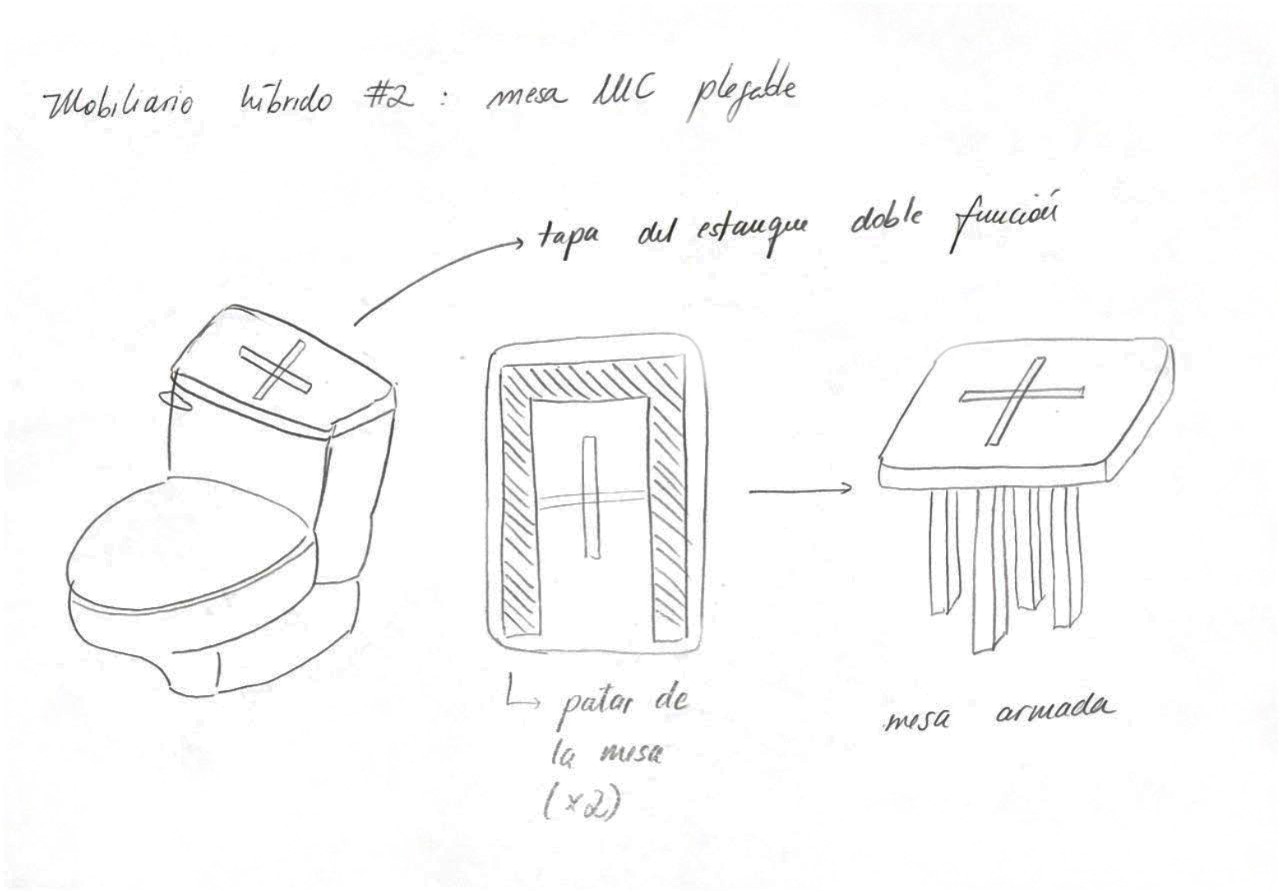 Mobiliario híbrido #2 : mesa WC plegable
tapa del estanque doble función
patas de
la mesa
(x2)
mesa armada